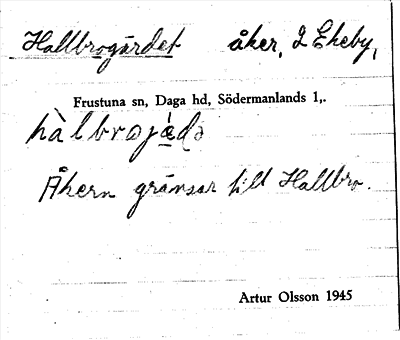 Hallbrogärdet åker, 2 Ekeby,
Frustuna sn, Daga hd, Södermanlands l,.
hàlbrojä́ḍə
Åkern gränsar till Hallbro.
Artur Olsson 1945